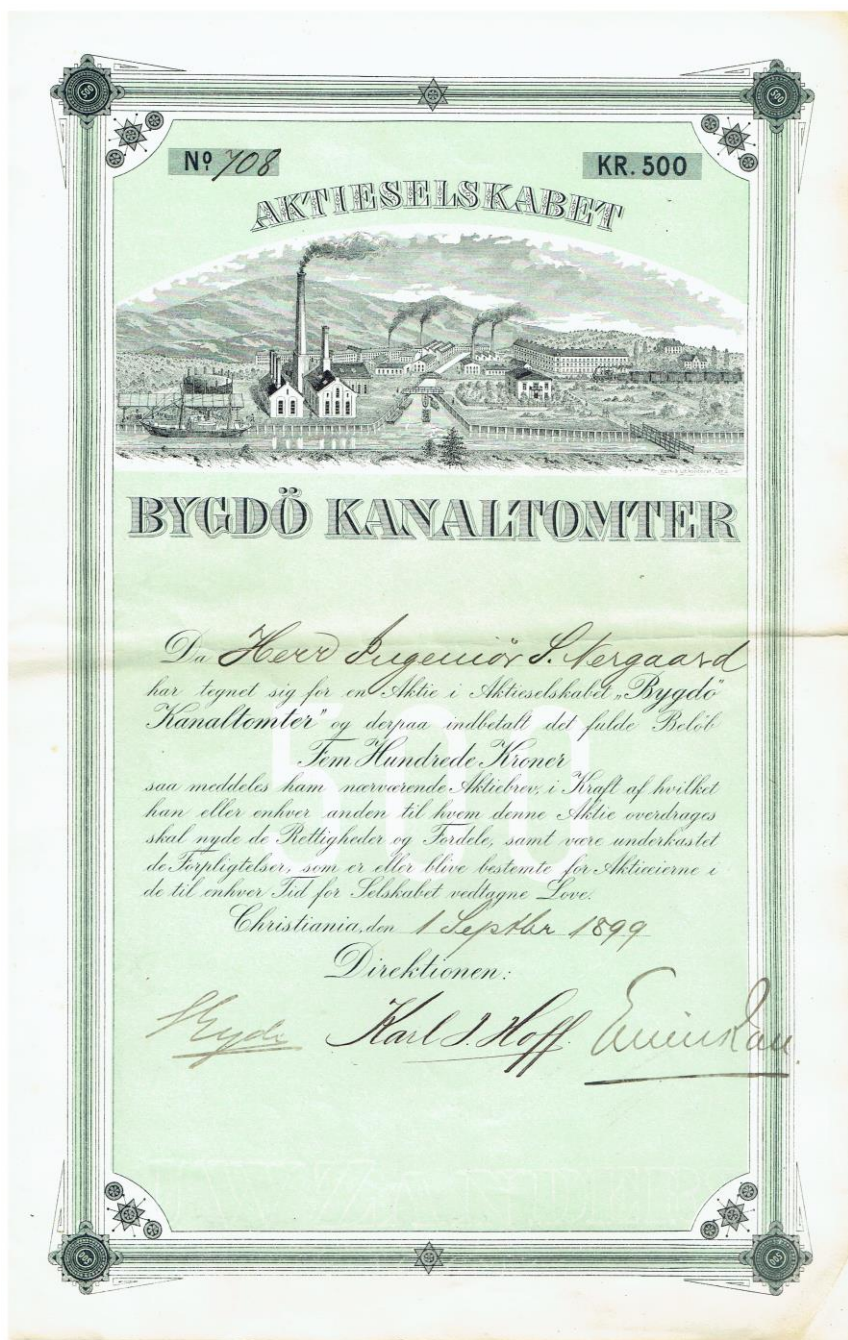 Nº 708
KR. 500
AKTIESELSKABET
BYGDÖ KANALTOMTER
Da Herr Ingeniör S. Nergaard
har tegnet sig for en Aktie i Aktieselskabet „Bygdö
Kanaltomter" og derpaa indbetalt det fulde Belöb
Fem Hundrede Kroner
saa meddeles ham nærværende Aktiebrev, i Kraft af hvilket
han eller enhver anden til hvem denne Aktie overdrages
skal nyde de Rettigheder og Fordele, samt være underkastet
de Forpligtelser, som er eller blive bestemte for Aktieeierne i
de til enhver Tid for Selskabet vedtagne Love.
500
Christiania, den 1 Septbr 1899
Direktionen:
Karl J. Hoff.